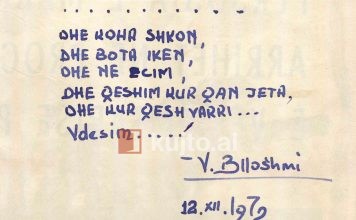 . . . . . . . . . . . .
DHE KOHA SHKON,
DHE BOTA IKEN,
DHE NE ECIM,
DHE QESHIM KUR QAN JETA,
DHE KUR QESH VARRI...
Vdesim.....
kujto.ai
– V. Blloshmi
12.XII.1979